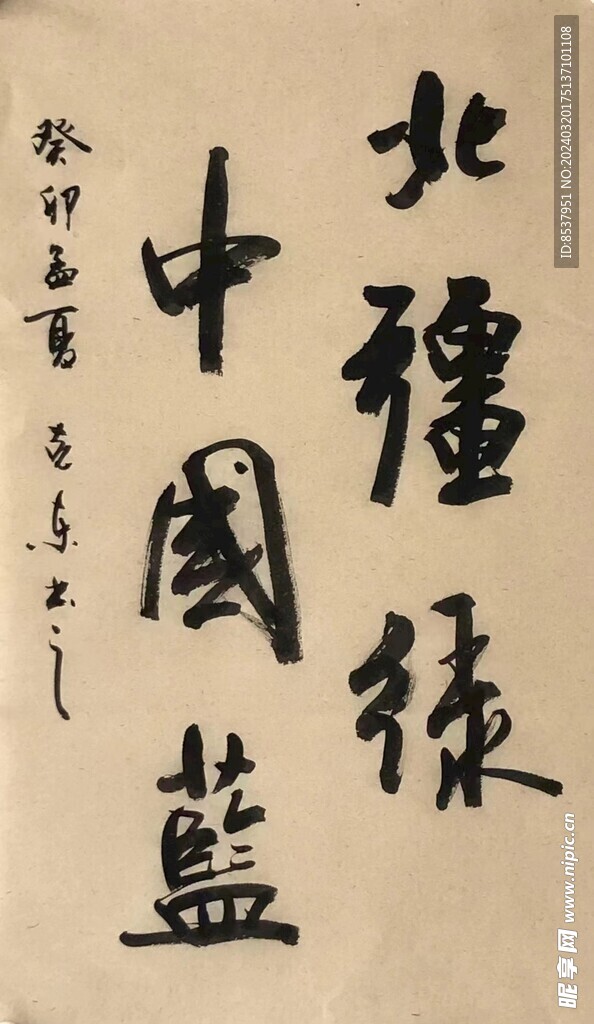 北疆绿
中國藍
癸卯孟夏 克东书之
ID:8537951 NO:20240320175137101108
昵享网 www.nipic.cn